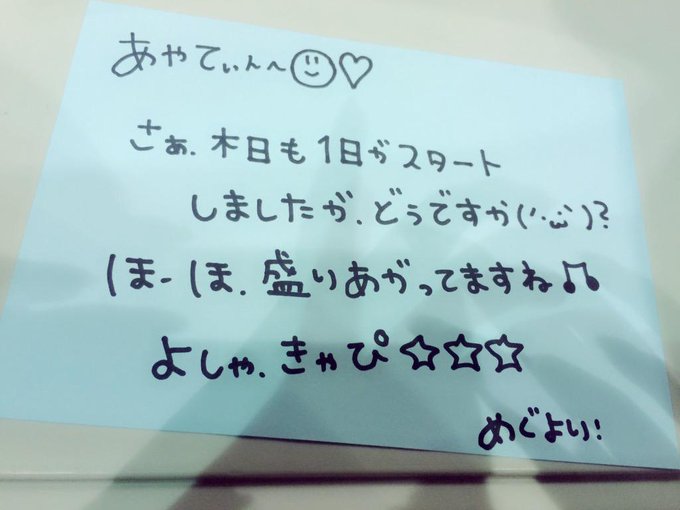 あやてぃん〜☺♡
さぁ、本日も1日がスタート
しましたが、どうですか(˙˙ω˙˙)?
ほーほ、盛りあがってますね♫
よしゃ、きゃぴ☆☆☆
めぐより!